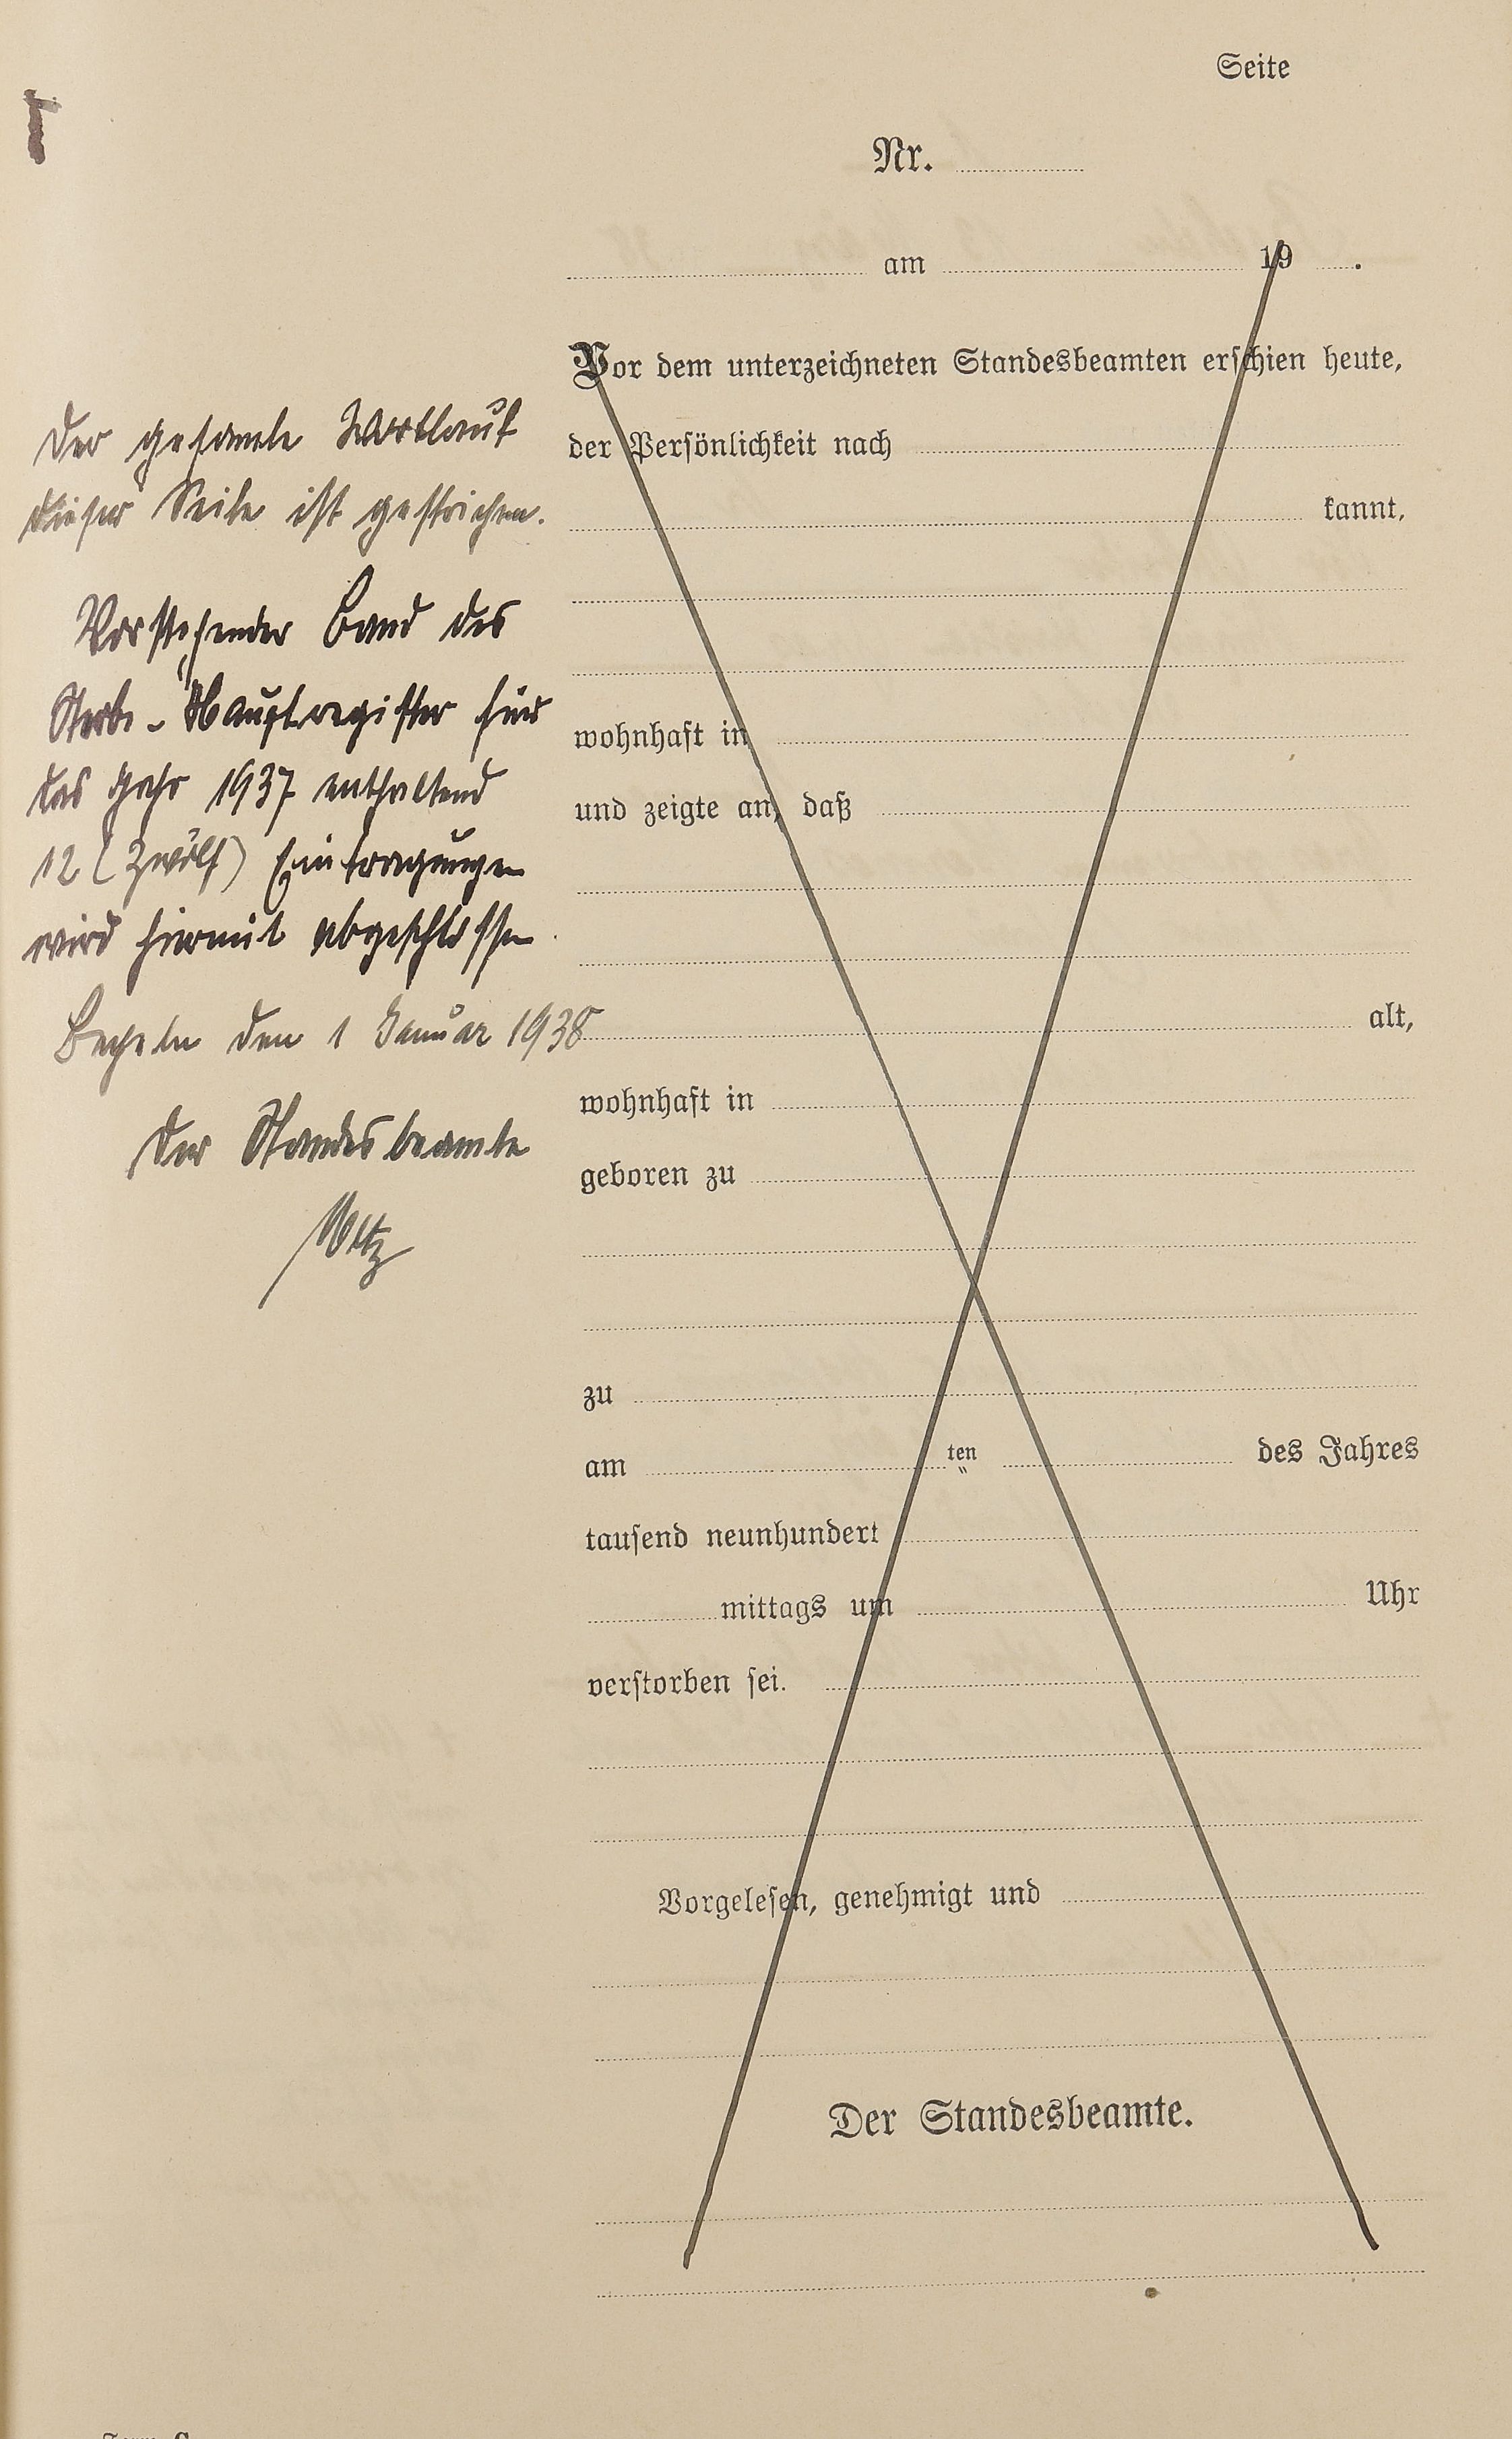 Seite
Nr.
am 19 .
Vor dem unterzeichneten Standesbeamten erschien heute,
der Persönlichkeit nach
kannt,
wohnhaft in
und zeigte an, daß
alt,
wohnhaft in
geboren zu
zu
am ten des Jahres
tausend neunhundert
mittags um Uhr
verstorben sei.
Vorgelesen, genehmigt und
Der Standesbeamte.
Der gesamte Wortlaut
dieser Seite ist gestrichen.
Vorstehender Band des
Sterbe-Hauptregister für
das Jahr 1937 enthaltend
12 (Zwölf) Eintragungen
wird hiermit abgeschlossen.
den 1 Januar 1938
Der Standesbeamte